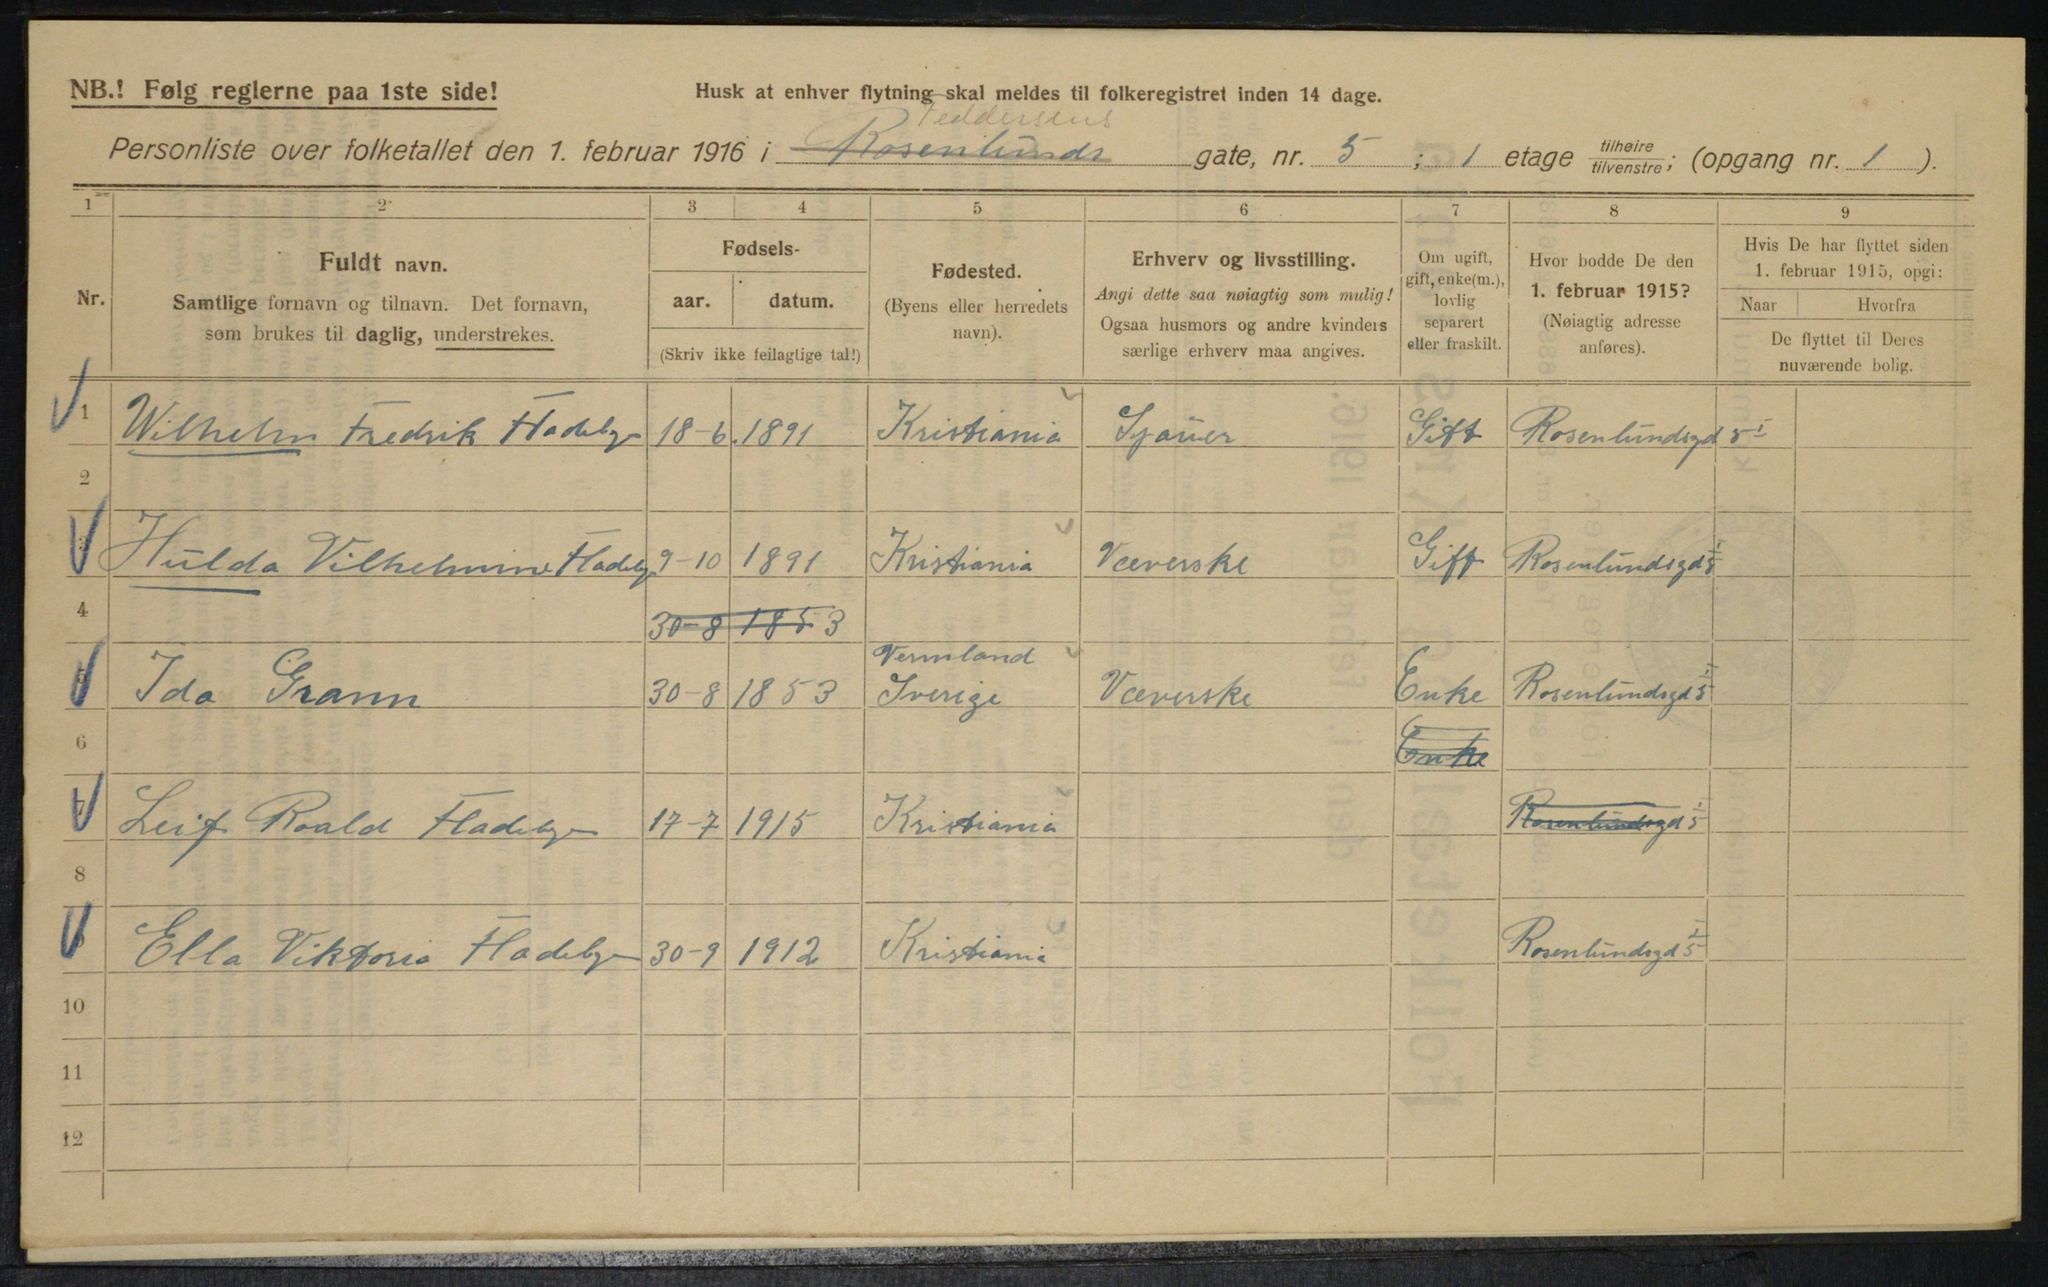 NB.! Følg reglerne paa 1ste side!
Husk at enhver flytning skal meldes til folkeregistret inden 14 dage.
Feddersens
Personliste over folketallet den 1. februar 1916 i Rosenlunds gate, nr. 5 ; 1 etage tilhøire/tilvenstre; (opgang nr. 1 ).
1 2 3 4 5 6 7 8 9
Nr.
Fuldt navn.
Samtlige fornavn og tilnavn. Det fornavn,
som brukes til daglig, understrekes.
Fødsels-
aar. datum.
(Skriv ikke feilagtige tal!)
Fødested.
(Byens eller herredets
navn).
Erhverv og livsstilling.
Angi dette saa nøiagtig som mulig!
Ogsaa husmors og andre kvinders
særlige erhverv maa angives.
Om ugift,
gift, enke(m.),
lovlig
separert
eller fraskilt.
Hvor bodde De den
1. februar 1915?
(Nøiagtig adresse
anføres).
Hvis De har flyttet siden
1. februar 1915, opgi:
Naar Hvorfra
De flyttet til Deres
nuværende bolig.
1 Wilhelm Fredrik Fladeby 18-6. 1891 Kristiania Sjauer Gift Rosenlundsgd 5 I
2
3 Hulda Vilhelmine Fladeby 9-10 1891 Kristiania Væverske Gift Rosenlundsgd 5 I
4 30-8 1853
Vermland
5 Ida Grann 30-8 1853 Sverige Væverske Enke Rosenlundsgd 5 I
6 Enke
7 Leif Roald Fladeby 17-7 1915 Kristiania Rosenlundsgd 5 I
8
9 Ella Viktoria Fladeby 30-9 1912 Kristiania Rosenlundsgd 5 I
10
11
12